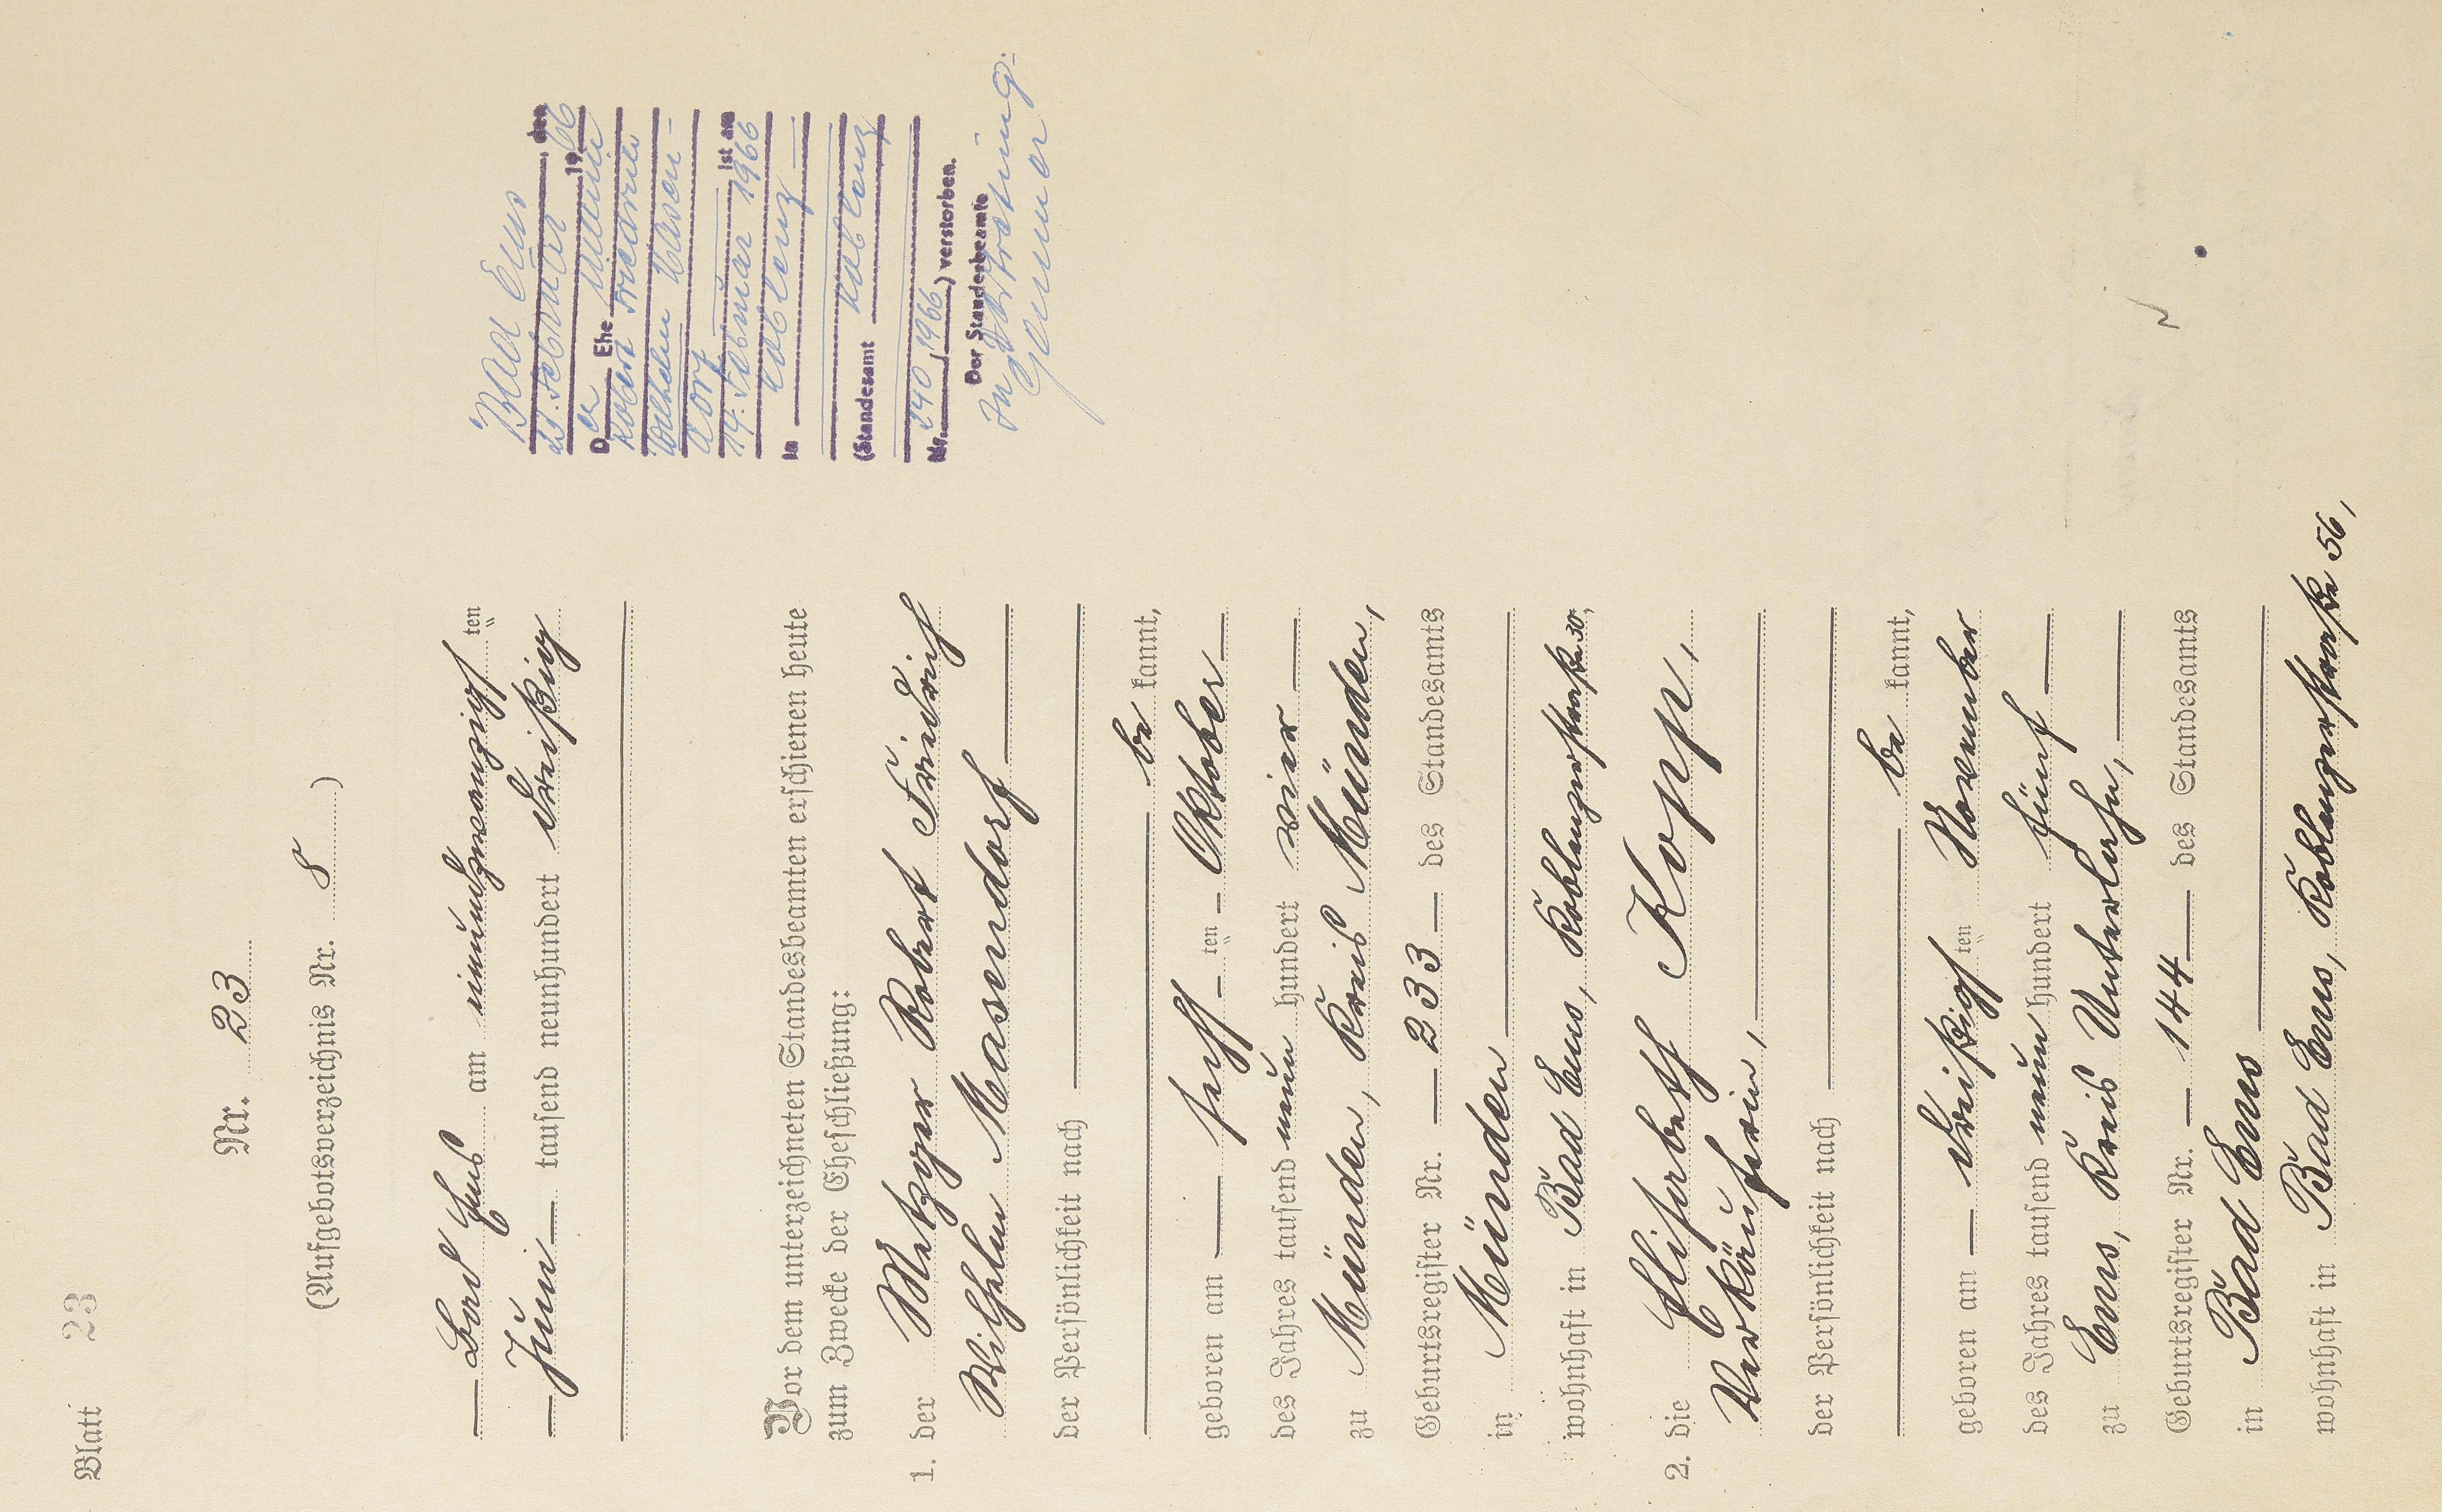 Blatt 23
Nr. 23
(Aufgebotsverzeichnis Nr. 8)
Bad Ems am neunundzwanzigsten
Juni tausend neunhundert dreißig
Vor dem unterzeichneten Standesbeamten erschienen heute
zum Zwecke der Eheschließung:
1. der Metzger Robert Friedrich
Wilhelm Masendorf
der Persönlichkeit nach
be kannt,
geboren am sechsten Oktober
des Jahres tausend neun hundert vier
zu Münden, Kreis Münden,
Geburtsregister Nr. 233 des Standesamts
in Münden
wohnhaft in Bad Ems, Koblenzerstraße 30,
2. die Elisabeth Kopp,
Verkäuferin,
der Persönlichkeit nach
be kannt,
geboren am dreißigsten November
des Jahres tausend neun hundert fünf
zu Ems, Kreis Unterlahn,
Geburtsregister Nr. 144 des Standesamts
in Bad Ems
wohnhaft in Bad Ems, Koblenzerstraße 56,
Bad Ems, den
21. Februar 1966
Der Ehemann
Robert Friedrich
Wilhelm Masen-
dorf ist am
14. Februar 1966
in Koblenz
(Standesamt Koblenz
Nr. 240/1966) verstorben.
Der Standesbeamte
In Vertretung: